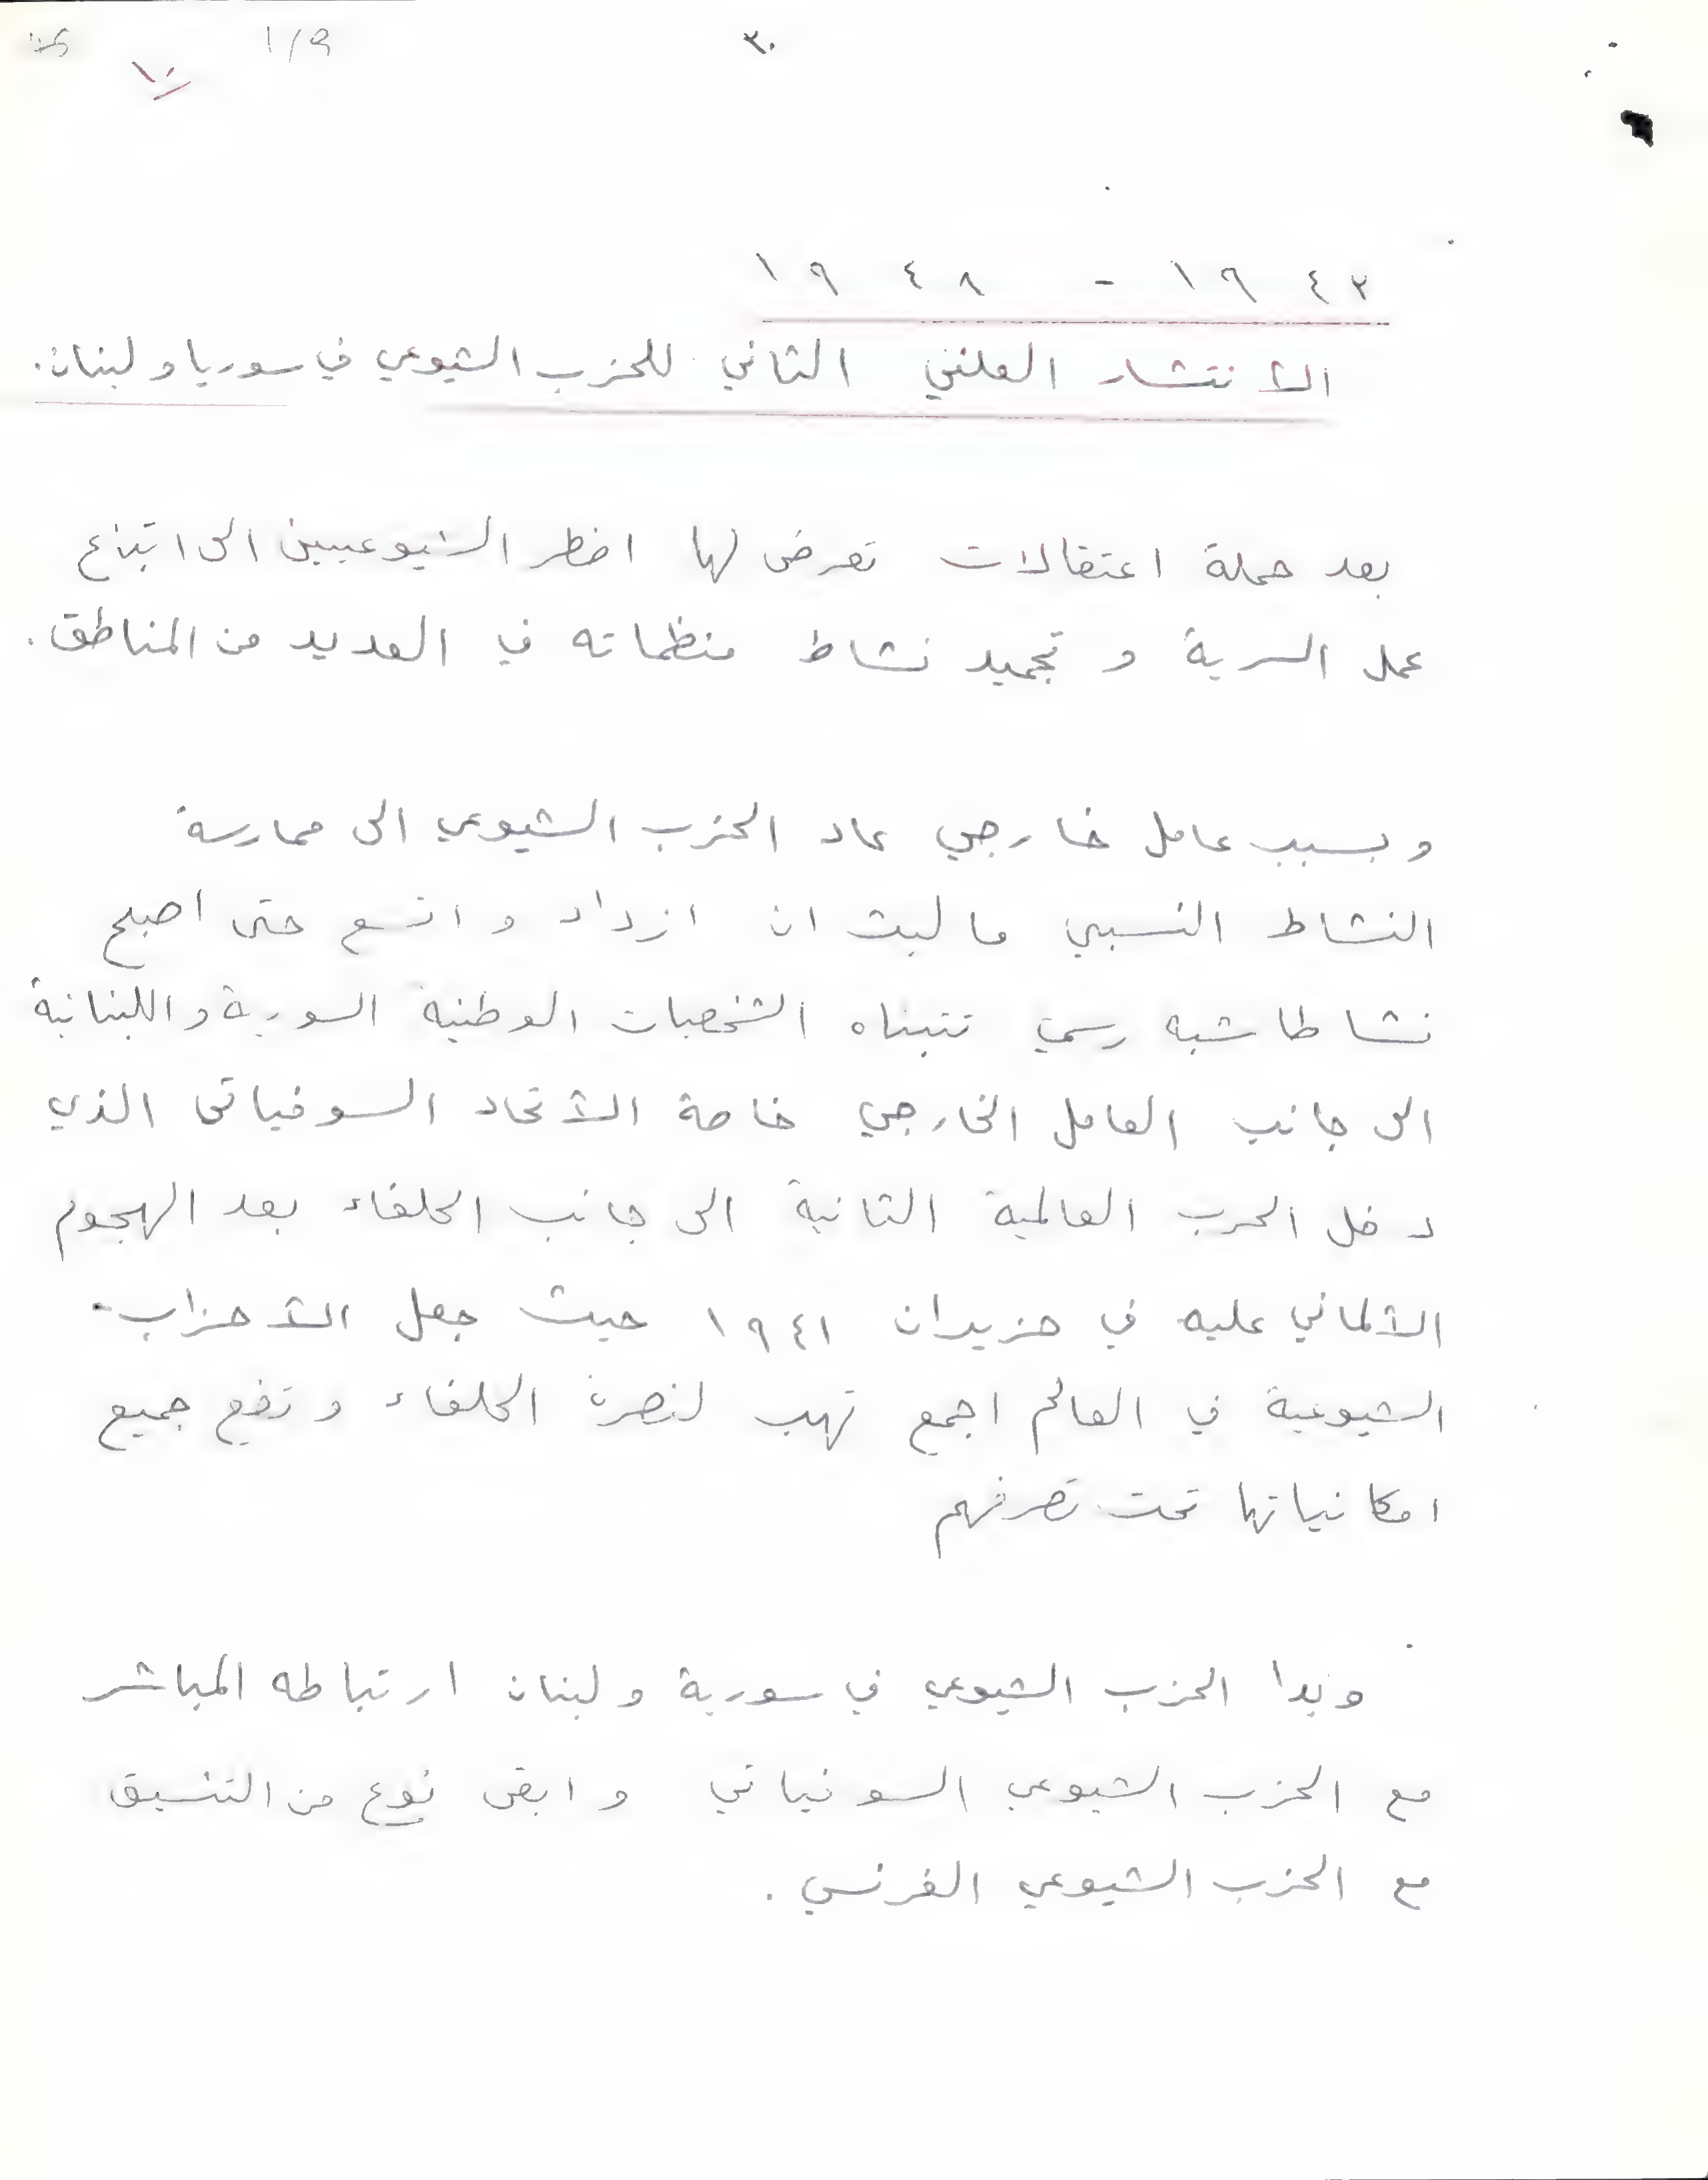 ٣٠
١/٩
١٠
١٩٤٢ - ١٩٤٨
الانتشار العلني الثاني للحزب الشيوعي في سوريا ولبنان.
بعد حملة اعتقالات تعرض لها اضطر الشيوعيين الى اتباع
عمل السرية و تجميد نشاط منظماته في العديد من المناطق.
وبسبب عامل خارجي عاد الحزب الشيوعي الى ممارسة
النشاط النسبي ما لبث ان ازداد و اتسع حتى اصبح
نشاطا شبه رسمي تتبناه الشخصيات الوطنية السورية واللبنانية
الى جانب العامل الخارجي خاصة الاتحاد السوفياتي الذي
دخل الحرب العالمية الثانية الى جانب الحلفاء بعد الهجوم
الالماني عليه في حزيران ١٩٤١ حيث جعل الاحزاب -
الشيوعية في العالم اجمع تهب لنصرة الحلفاء و تضع جميع
امكانياتها تحت تصرفهم
وبدا الحزب الشيوعي في سورية ولبنان ارتباطه المباشر
مع الحزب الشيوعي السوفياتي و ابقى نوع من التنسيق
مع الحزب الشيوعي الفرنسي .